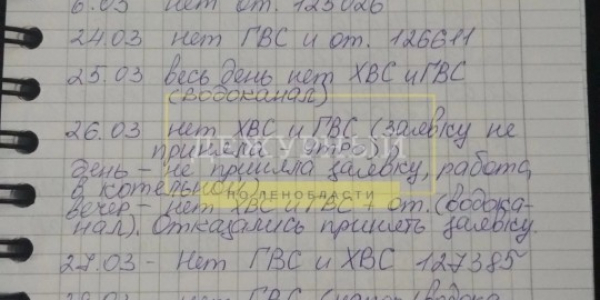 6.03 нет от. 123026
24.03 нет ГВС и от. 126611
25.03 весь день нет ХВС и ГВС
(водоканал)
26.03 нет ХВС и ГВС (заявку не
приняли утро)
день - не приняла заявку, работа,
в котельной)
вечер - нет ХВС и ГВС + от. (водока-
нал). Отказались принять заявку.
27.03 - Нет ГВС и ХВС 127385
нет ГВС
ДЕЖУРНЫЙ
ПО ЛЕНОБЛАСТИ